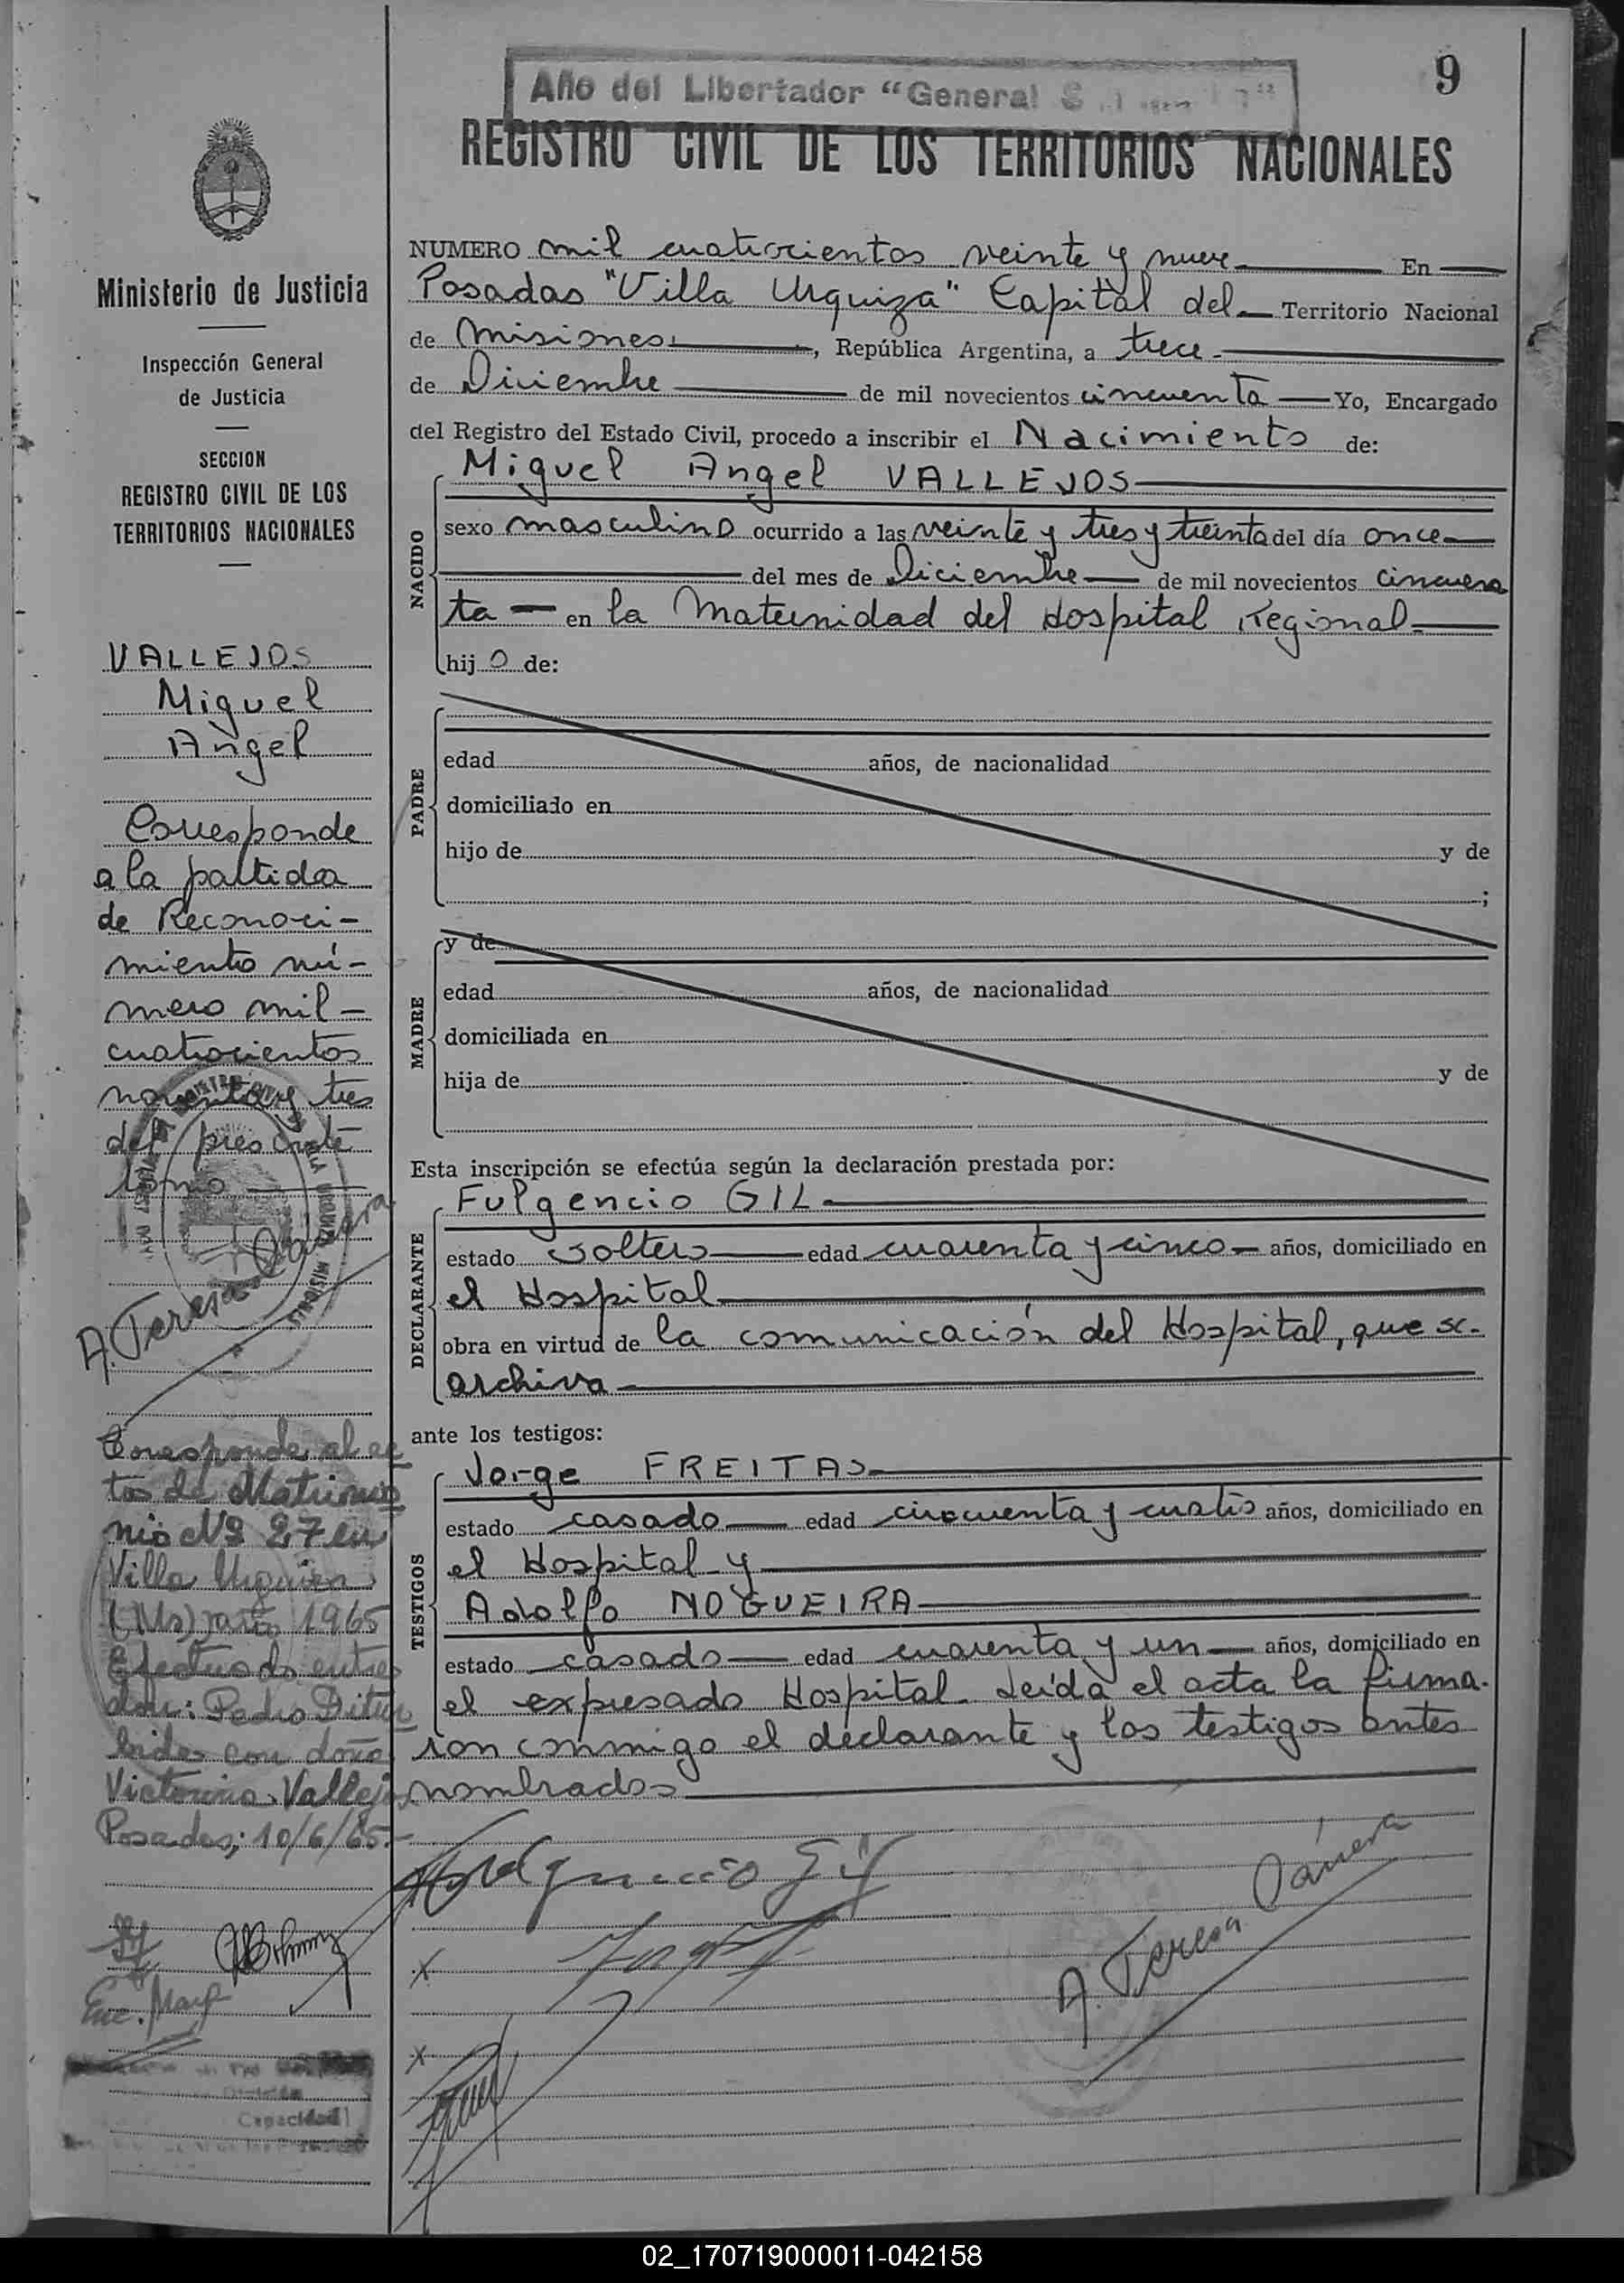 Año del Libertador "General
9
REGISTRO CIVIL DE LOS TERRITORIOS NACIONALES
Ministerio de Justicia
Inspección General
de Justicia
SECCION
REGISTRO CIVIL DE LOS
TERRITORIOS NACIONALES
VALLEJOS
Miguel
Angel
Corresponde
a la partida
de Reconoci-
miento nú-
mero mil
cuatrocientos
noventa y tres
del presente
tomo
A. Teresa
Corresponde al ac
tos de Matrimo
nio Nº 27 en
Villa Urquiza
(Ms) año 1965
Efectuado entre
don: Pedro
con doña
Victorina Vallejos
Posadas; 10/6/65.-
NUMERO mil cuatrocientos veinte y nueve En
Posadas "Villa Urquiza" Capital del Territorio Nacional
de Misiones, República Argentina, a trece
de Diciembre de mil novecientos cincuenta Yo, Encargado
del Registro del Estado Civil, procedo a inscribir el Nacimiento de:
Miguel Angel VALLEJOS
NACIDO
sexo masculino ocurrido a las veinte y tres y treinta del día once
del mes de Diciembre de mil novecientos cincuen
ta en la Maternidad del Hospital Regional
hij o de:
PADRE
edad años, de nacionalidad
domiciliado en
hijo de y de
;
MADRE
y de
edad años, de nacionalidad
domiciliada en
hija de y de
Esta inscripción se efectúa según la declaración prestada por:
Fulgencio GIL
DECLARANTE
estado soltero edad cuarenta y cinco años, domiciliado en
el Hospital
obra en virtud de la comunicación del Hospital, que se
archiva
ante los testigos:
Jorge FREITAS
TESTIGOS
estado casado edad cincuenta y cuatro años, domiciliado en
el Hospital y
Adolfo NOGUEIRA
estado casado edad cuarenta y un años, domiciliado en
el expresado Hospital. Leída el acta la firma-
ron conmigo el declarante y los testigos antes
nombrados
Fulgencio Gil
A. Teresa
Capacidad
02_170719000011-042158